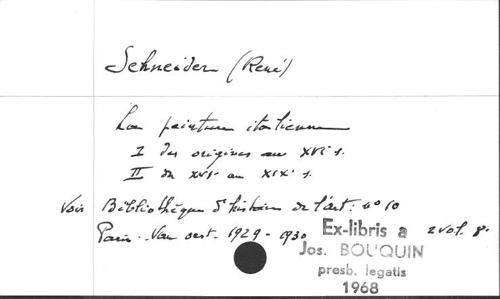 Schneider (René)
La peinture italienne
I des origines au XVIe s.
II du XVIe au XIXe s.
Voir Bibliothèque d'histoire de l'art : no 10
Paris. Van Oest. 1929 - 1930 2 vol. 8°
Ex-libris a
Jos. BOUQUIN
presb. legatis
1968